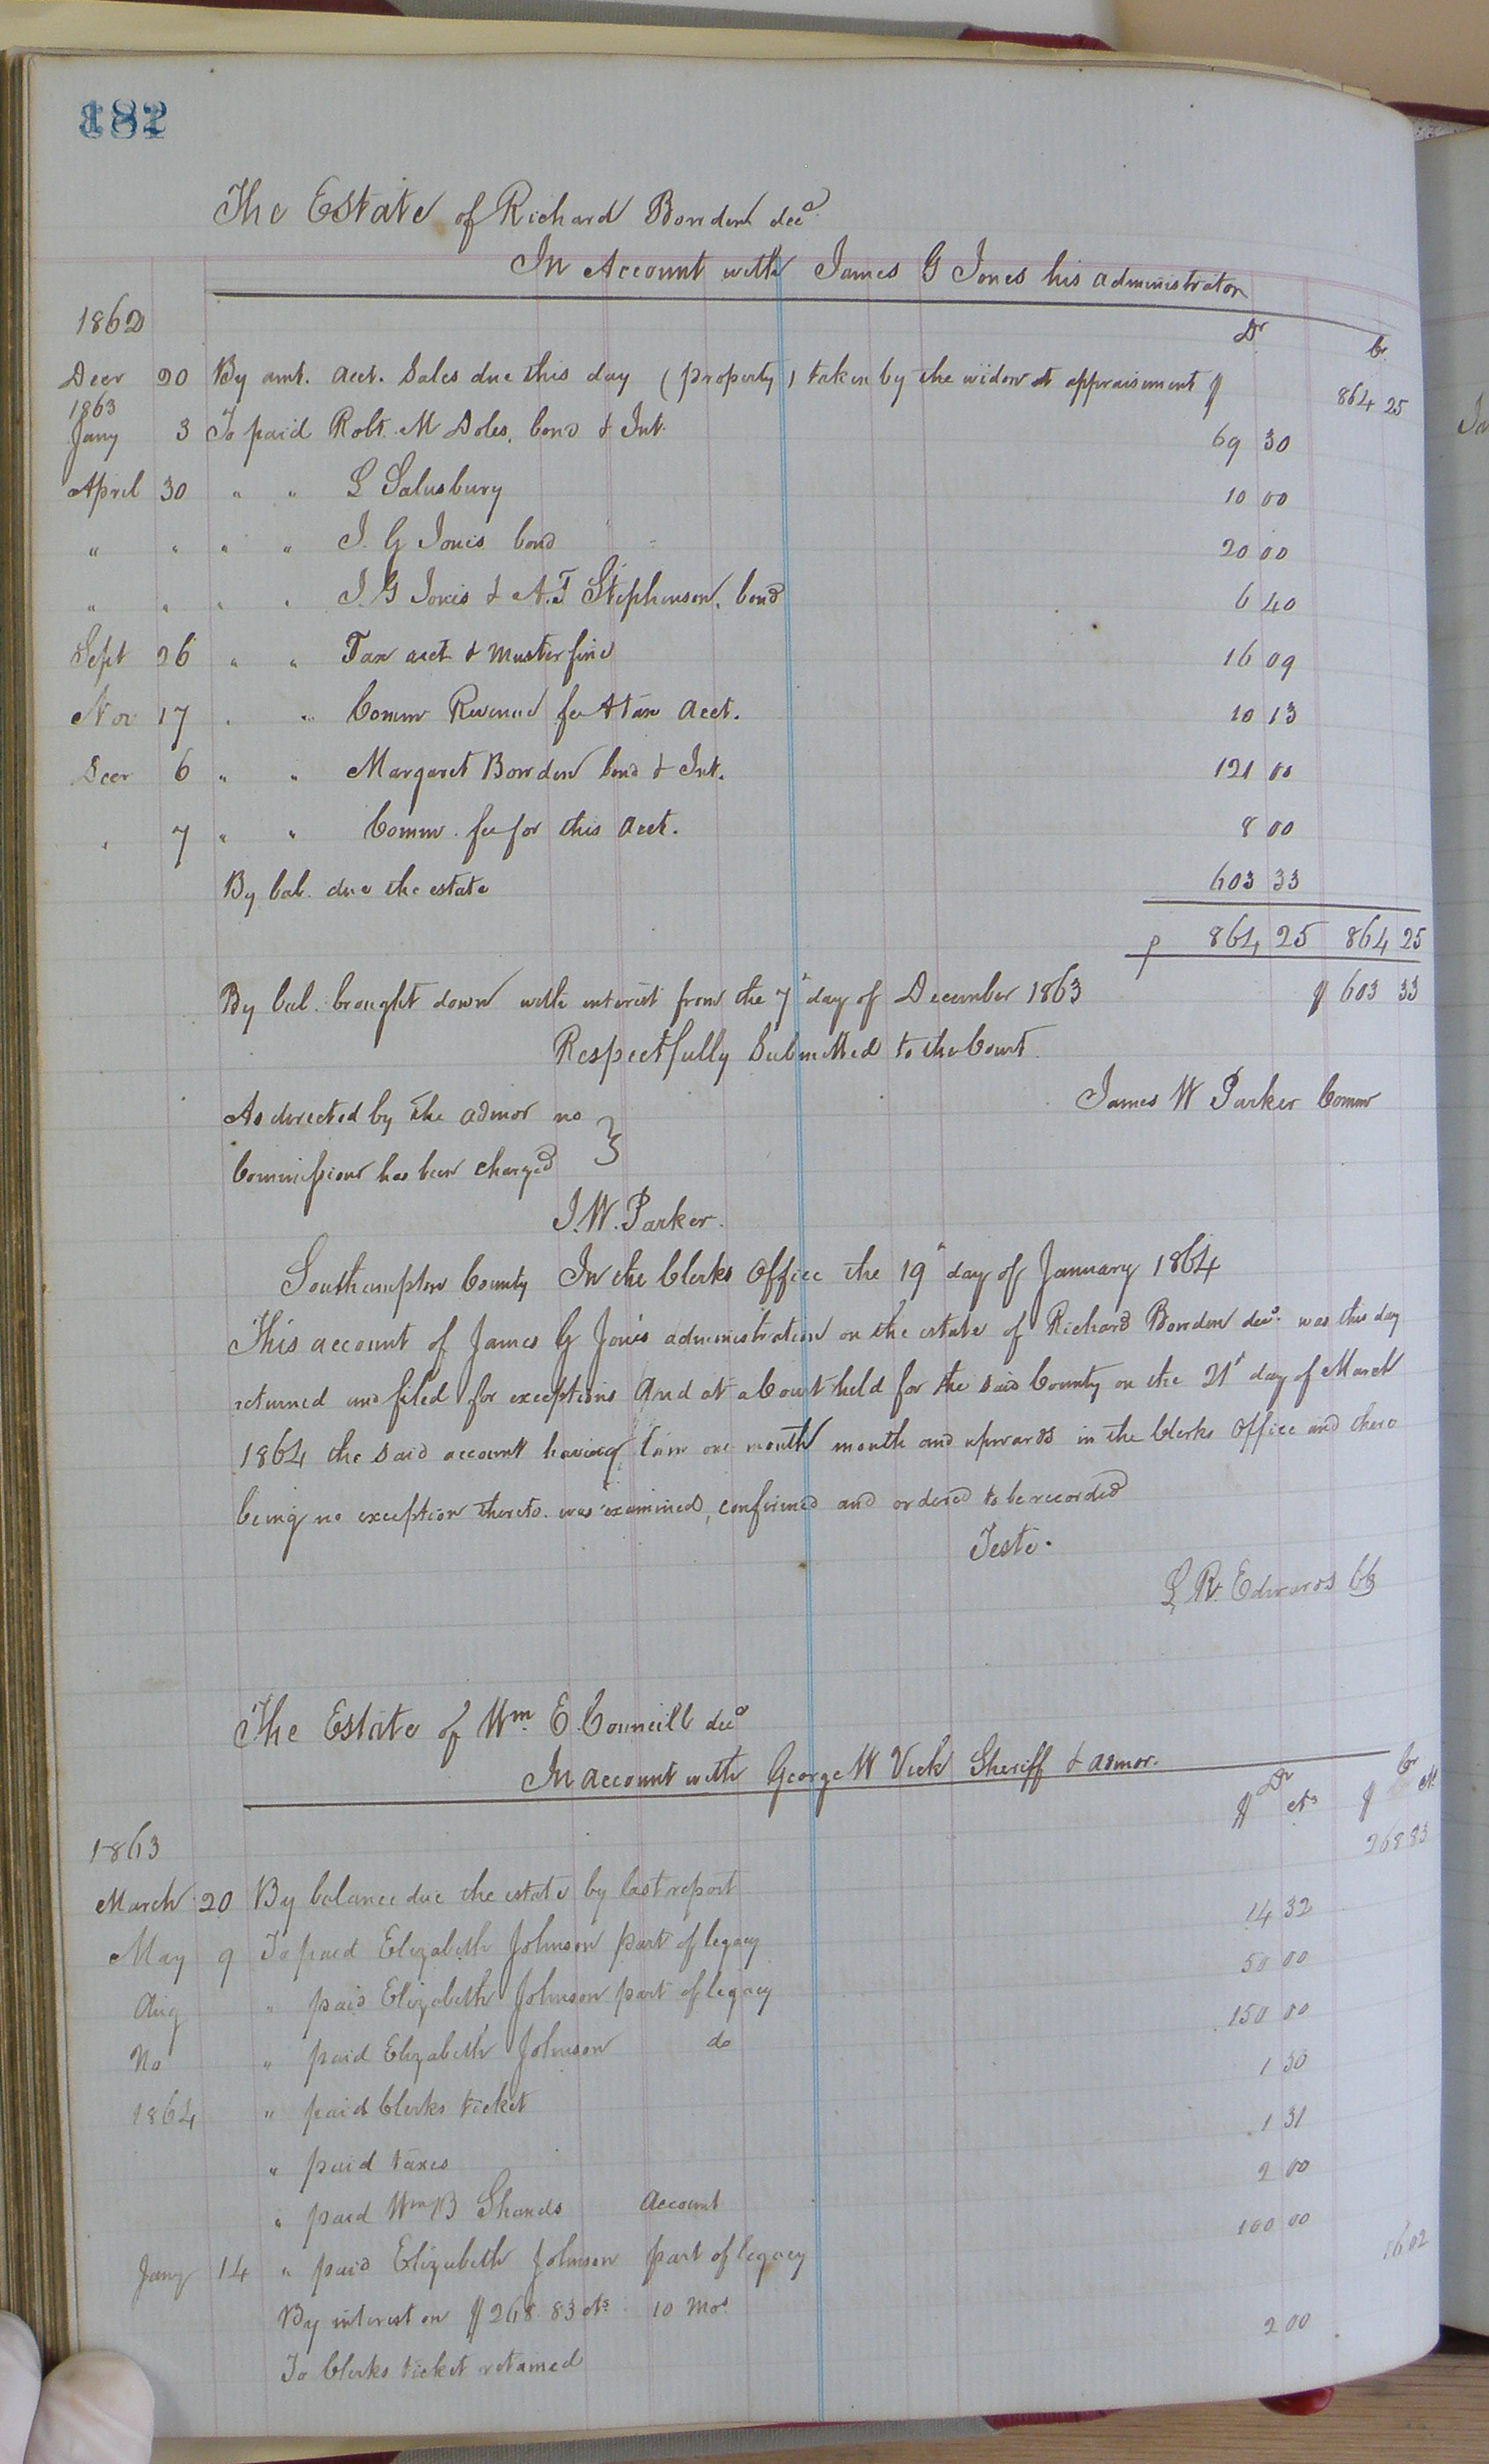 182
The Estate of Richard Bowden decd
In Account with James G Jones his administrator
1862
Dr
Cr
Decr 20 By amt. acct. Sales due this day (property) taken by the widow at appraisement $ 864 25
1863
Jany 3 To paid Robt. M Doles, bond & Int. 69 30
April 30 " " L Salusbury 10 00
" " " " J. G Jones bond 20 00
" " " " J. G Jones & A.T Stephenson, bond 6 40
Sept 26 " " Tax acct & muster fine 16 09
Nov 17 " " Commr Revenue fee & tax acct. 10 13
Decr 6 " " Margaret Bowden bond & Int. 121 00
" 7 " " Commr. fee for this acct. 8 00
By bal. due the estate 603 33
$ 864 25 864 25
By bal. brought down with interest from the 7" day of December 1863 $ 603 33
Respectfully Submitted to the Court
James W Parker Commr
As directed by the admor no
Commissions has been charged
J. W. Parker.
Southampton County In the Clerks Office the 19" day of January 1864
This account of James G Jones administration on the estate of Richard Bowden decd. was this day
returned and filed for exceptions And at a Court held for the said County on the 21st day of March
1864 the said account having lain one month month and upwards in the Clerks Office and there
being no exception thereto was examined, confirmed and ordered to be recorded
Teste.
L. R. Edwards Ck
The Estate of Wm. E. Councill decd
In account with George W Vick Sheriff & admor.
Dr Cr
$ cts $ cts
1863 268 83
March 20 By balance due the estate by last report
May 9 To paid Elizabeth Johnson part of legacy 14 32
Aug " paid Elizabeth Johnson part of legacy 50 00
No " paid Elizabeth Johnson do 150 00
1864 " paid Clerks ticket 1 50
" paid taxes 1 31
" paid Wm B Shands Account 2 00
Jany 14 " paid Elizabeth Johnson part of legacy 100 00
By interest on $268.83 cts. 10 Mos 16 02
To Clerks ticket retained 2 00